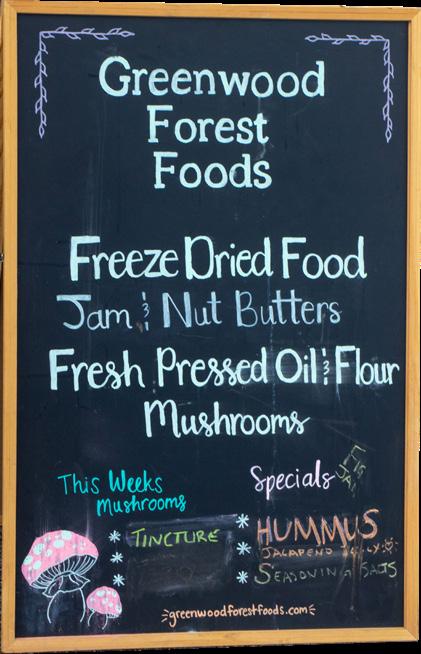 Greenwood
Forest
Foods
Freeze Dried Food
Jam & Nut Butters
Fresh Pressed Oil & Flour
Mushrooms
This Weeks
Mushrooms
* TINCTURE
*
*
Specials
* HUMMUS
* JALAPENO JELLY
* SEASONING SALTS
greenwoodforestfoods.com